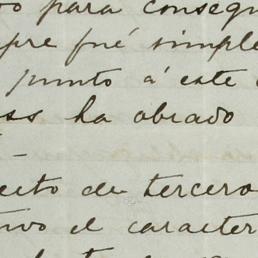 para consegu
pre fué simple
punto á este
ss ha obrado
eito de tercero
ivo el caracter